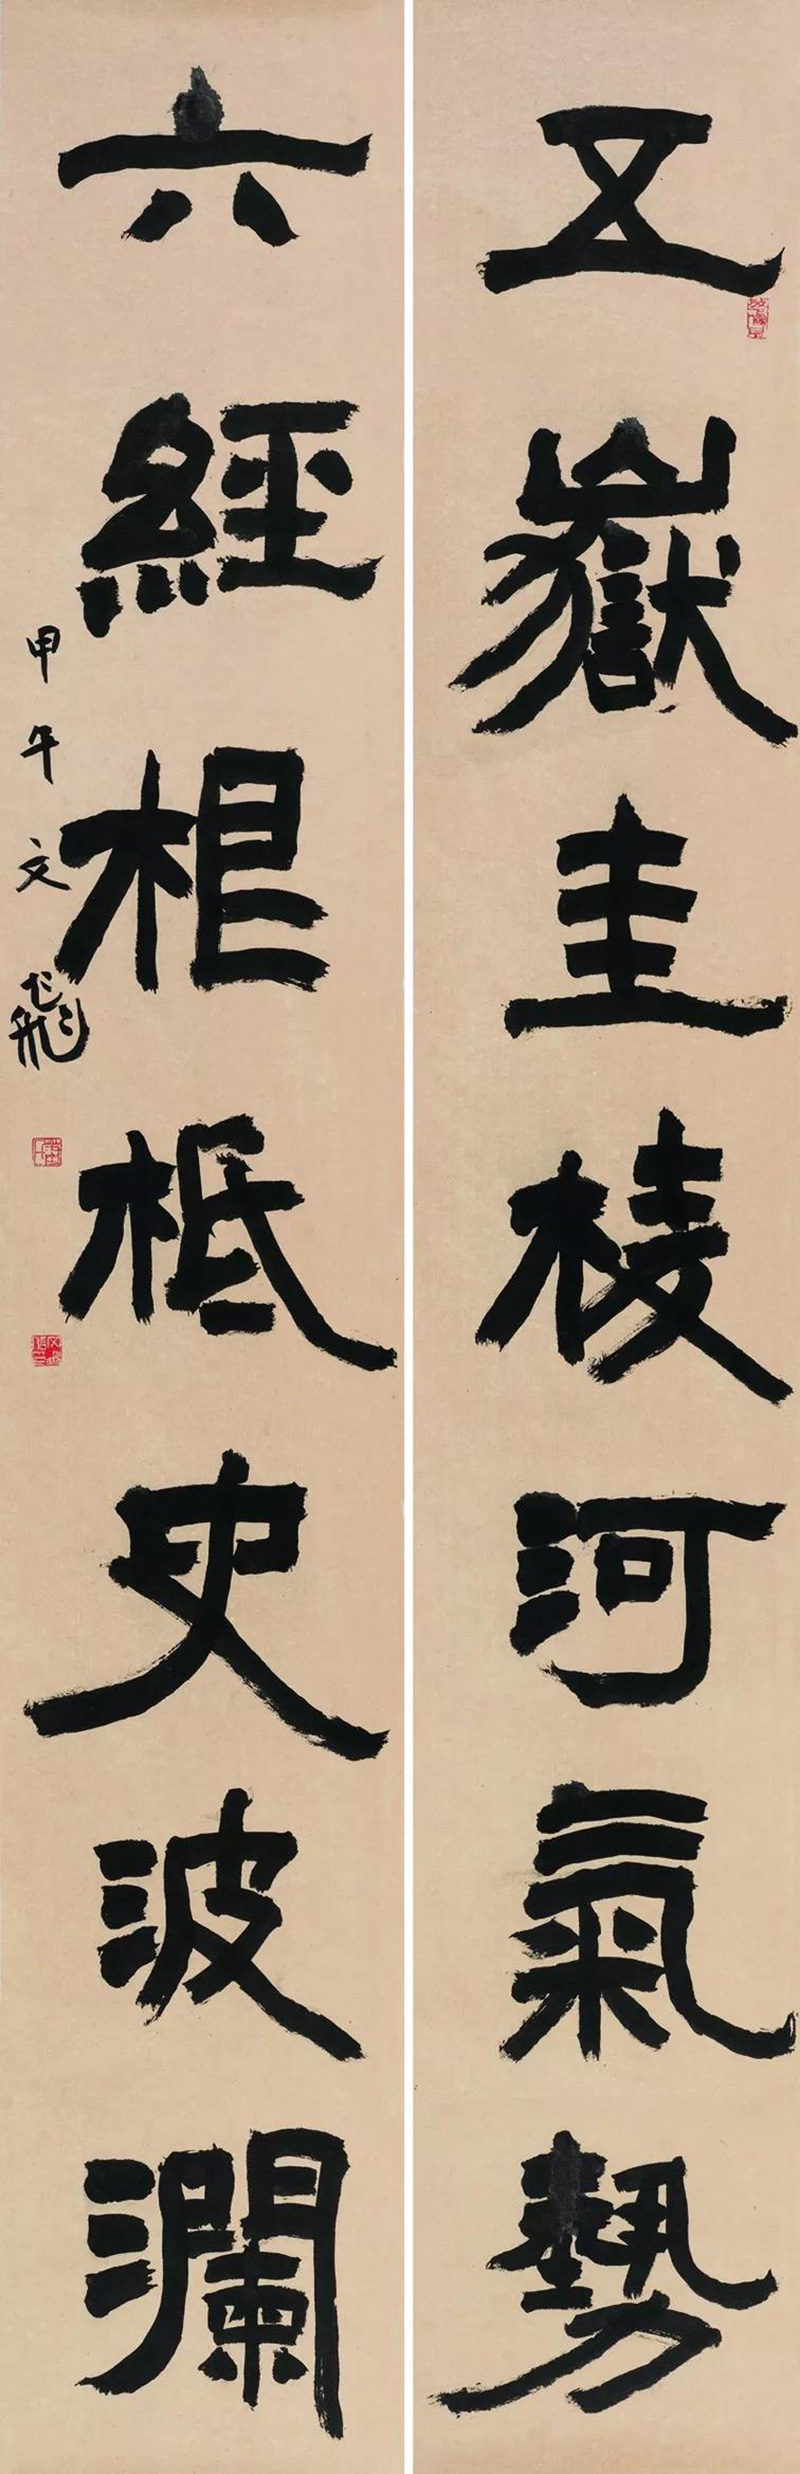 五嶽圭棱河氣勢
六經根柢史波瀾
甲午文飛